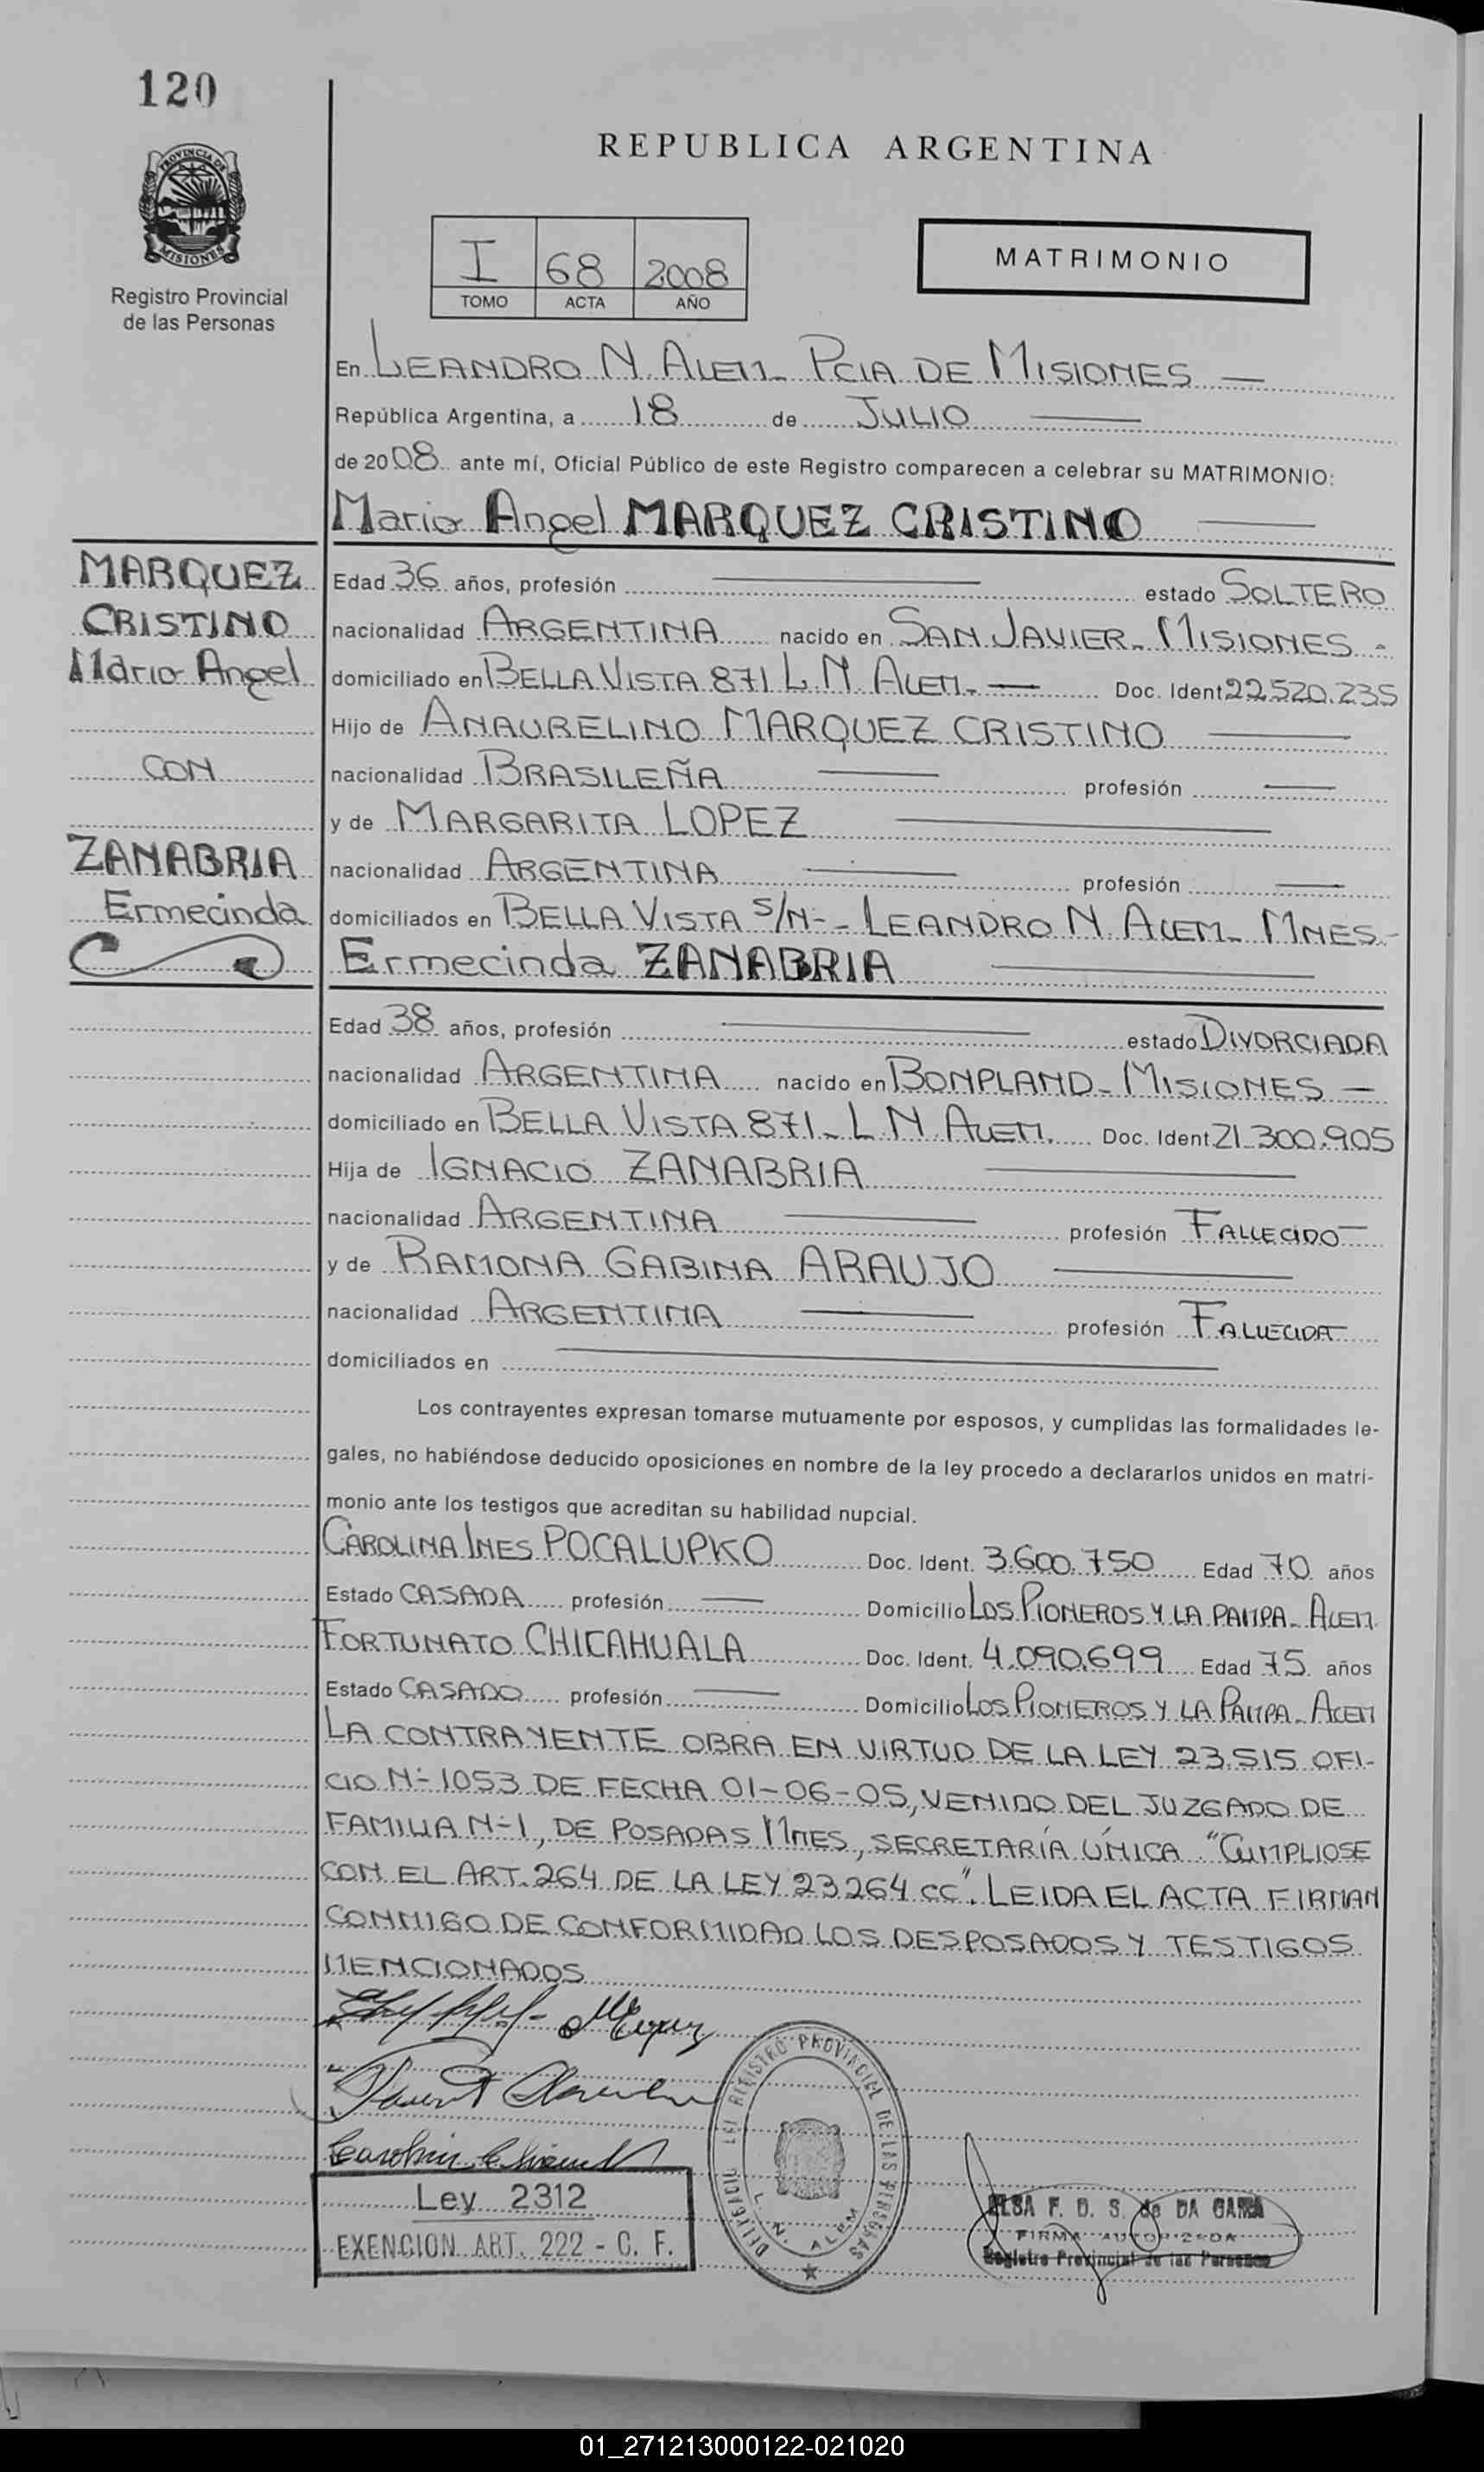 120
REPUBLICA ARGENTINA
PROVINCIA DE
MISIONES
Registro Provincial
de las Personas
I 68 2008
TOMO ACTA AÑO
MATRIMONIO
En LEANDRO N. ALEM - PCIA DE MISIONES —
República Argentina, a 18 de JULIO
de 2008 ante mí, Oficial Público de este Registro comparecen a celebrar su MATRIMONIO:
Mario Angel MARQUEZ CRISTINO
MARQUEZ
CRISTINO
Mario Angel
CON
ZANABRIA
Ermecinda
Edad 36 años, profesión — estado SOLTERO
nacionalidad ARGENTINA nacido en SAN JAVIER - MISIONES -
domiciliado en BELLA VISTA 871 L. N. ALEM - — Doc. Ident 22.520.235
Hijo de ANAURELINO MARQUEZ CRISTINO —
nacionalidad BRASILEÑA — profesión —
y de MARGARITA LOPEZ —
nacionalidad ARGENTINA — profesión —
domiciliados en BELLA VISTA S/N - LEANDRO N. ALEM - MNES -
Ermecinda ZANABRIA —
Edad 38 años, profesión — estado DIVORCIADA
nacionalidad ARGENTINA nacido en BONPLAND - MISIONES —
domiciliado en BELLA VISTA 871 - L N. ALEM. Doc. Ident 21.300.905
Hija de IGNACIO ZANABRIA —
nacionalidad ARGENTINA — profesión FALLECIDO —
y de RAMONA GABINA ARAUJO —
nacionalidad ARGENTINA — profesión FALLECIDA
domiciliados en —
Los contrayentes expresan tomarse mutuamente por esposos, y cumplidas las formalidades le-
gales, no habiéndose deducido oposiciones en nombre de la ley procedo a declararlos unidos en matri-
monio ante los testigos que acreditan su habilidad nupcial.
CAROLINA INES POCALUPKO Doc. Ident. 3.600.750 Edad 70 años
Estado CASADA profesión — Domicilio LOS PIONEROS Y LA PAMPA - ALEM
FORTUNATO CHICAHUALA Doc. Ident. 4.090.699 Edad 75 años
Estado CASADO profesión — Domicilio LOS PIONEROS Y LA PAMPA - ALEM
LA CONTRAYENTE OBRA EN VIRTUD DE LA LEY 23.515 OFI-
CIO Nº 1053 DE FECHA 01-06-05, VENIDO DEL JUZGADO DE
FAMILIA Nº 1, DE POSADAS MNES, SECRETARÍA ÚNICA "CUMPLIOSE
CON EL ART. 264 DE LA LEY 23264 CC". LEIDA EL ACTA FIRMAN
CONMIGO DE CONFORMIDAD LOS DESPOSADOS Y TESTIGOS
MENCIONADOS
Ley 2312
EXENCION ART. 222 - C. F.
REGISTRO PROVINCIAL DE LAS PERSONAS
L. N. ALEM
ELSA F. D. S. de DA GAMA
FIRMA AUTORIZADA
Registro Provincial de las Personas
01_271213000122-021020